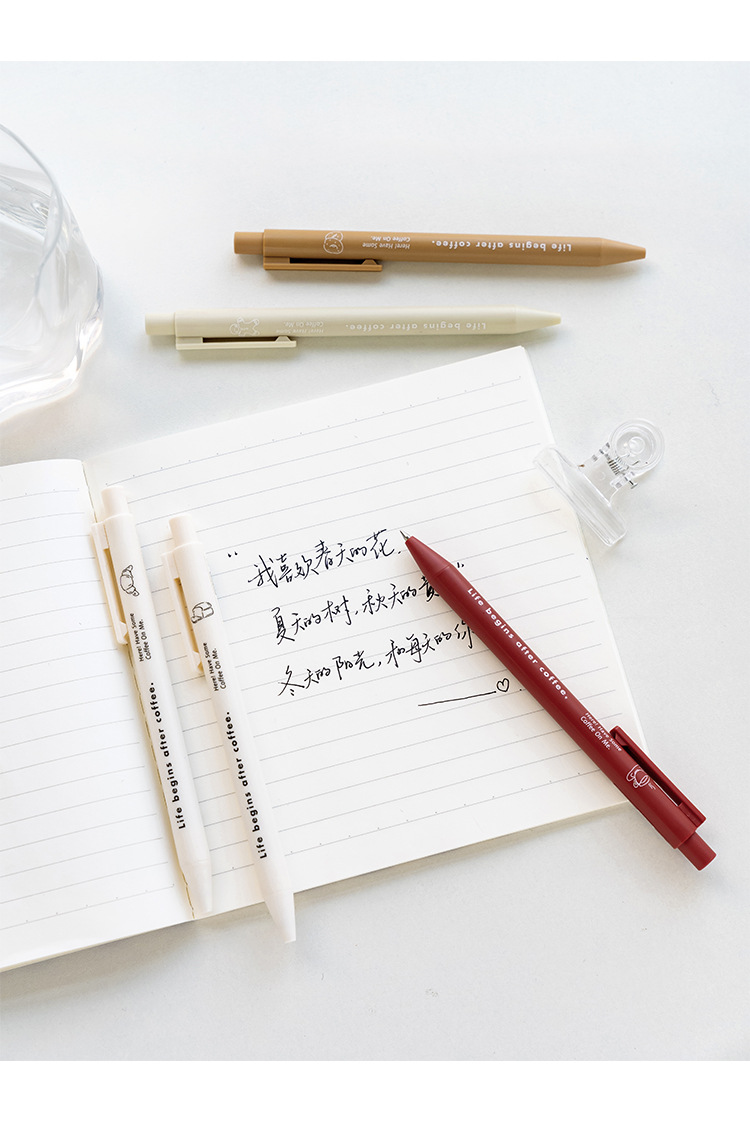 Here! Have Some
Coffee On Me.
Life begins after coffee.
Here! Have Some
Coffee On Me.
Life begins after coffee.
“我喜欢春天的花，
夏天的树，秋天的黄”
冬天的阳光，和每天的你
Life begins after coffee.
Here! Have Some
Coffee On Me.
Here! Have Some
Coffee On Me.
Life begins after coffee.
Here! Have Some
Coffee On Me.
Life begins after coffee.